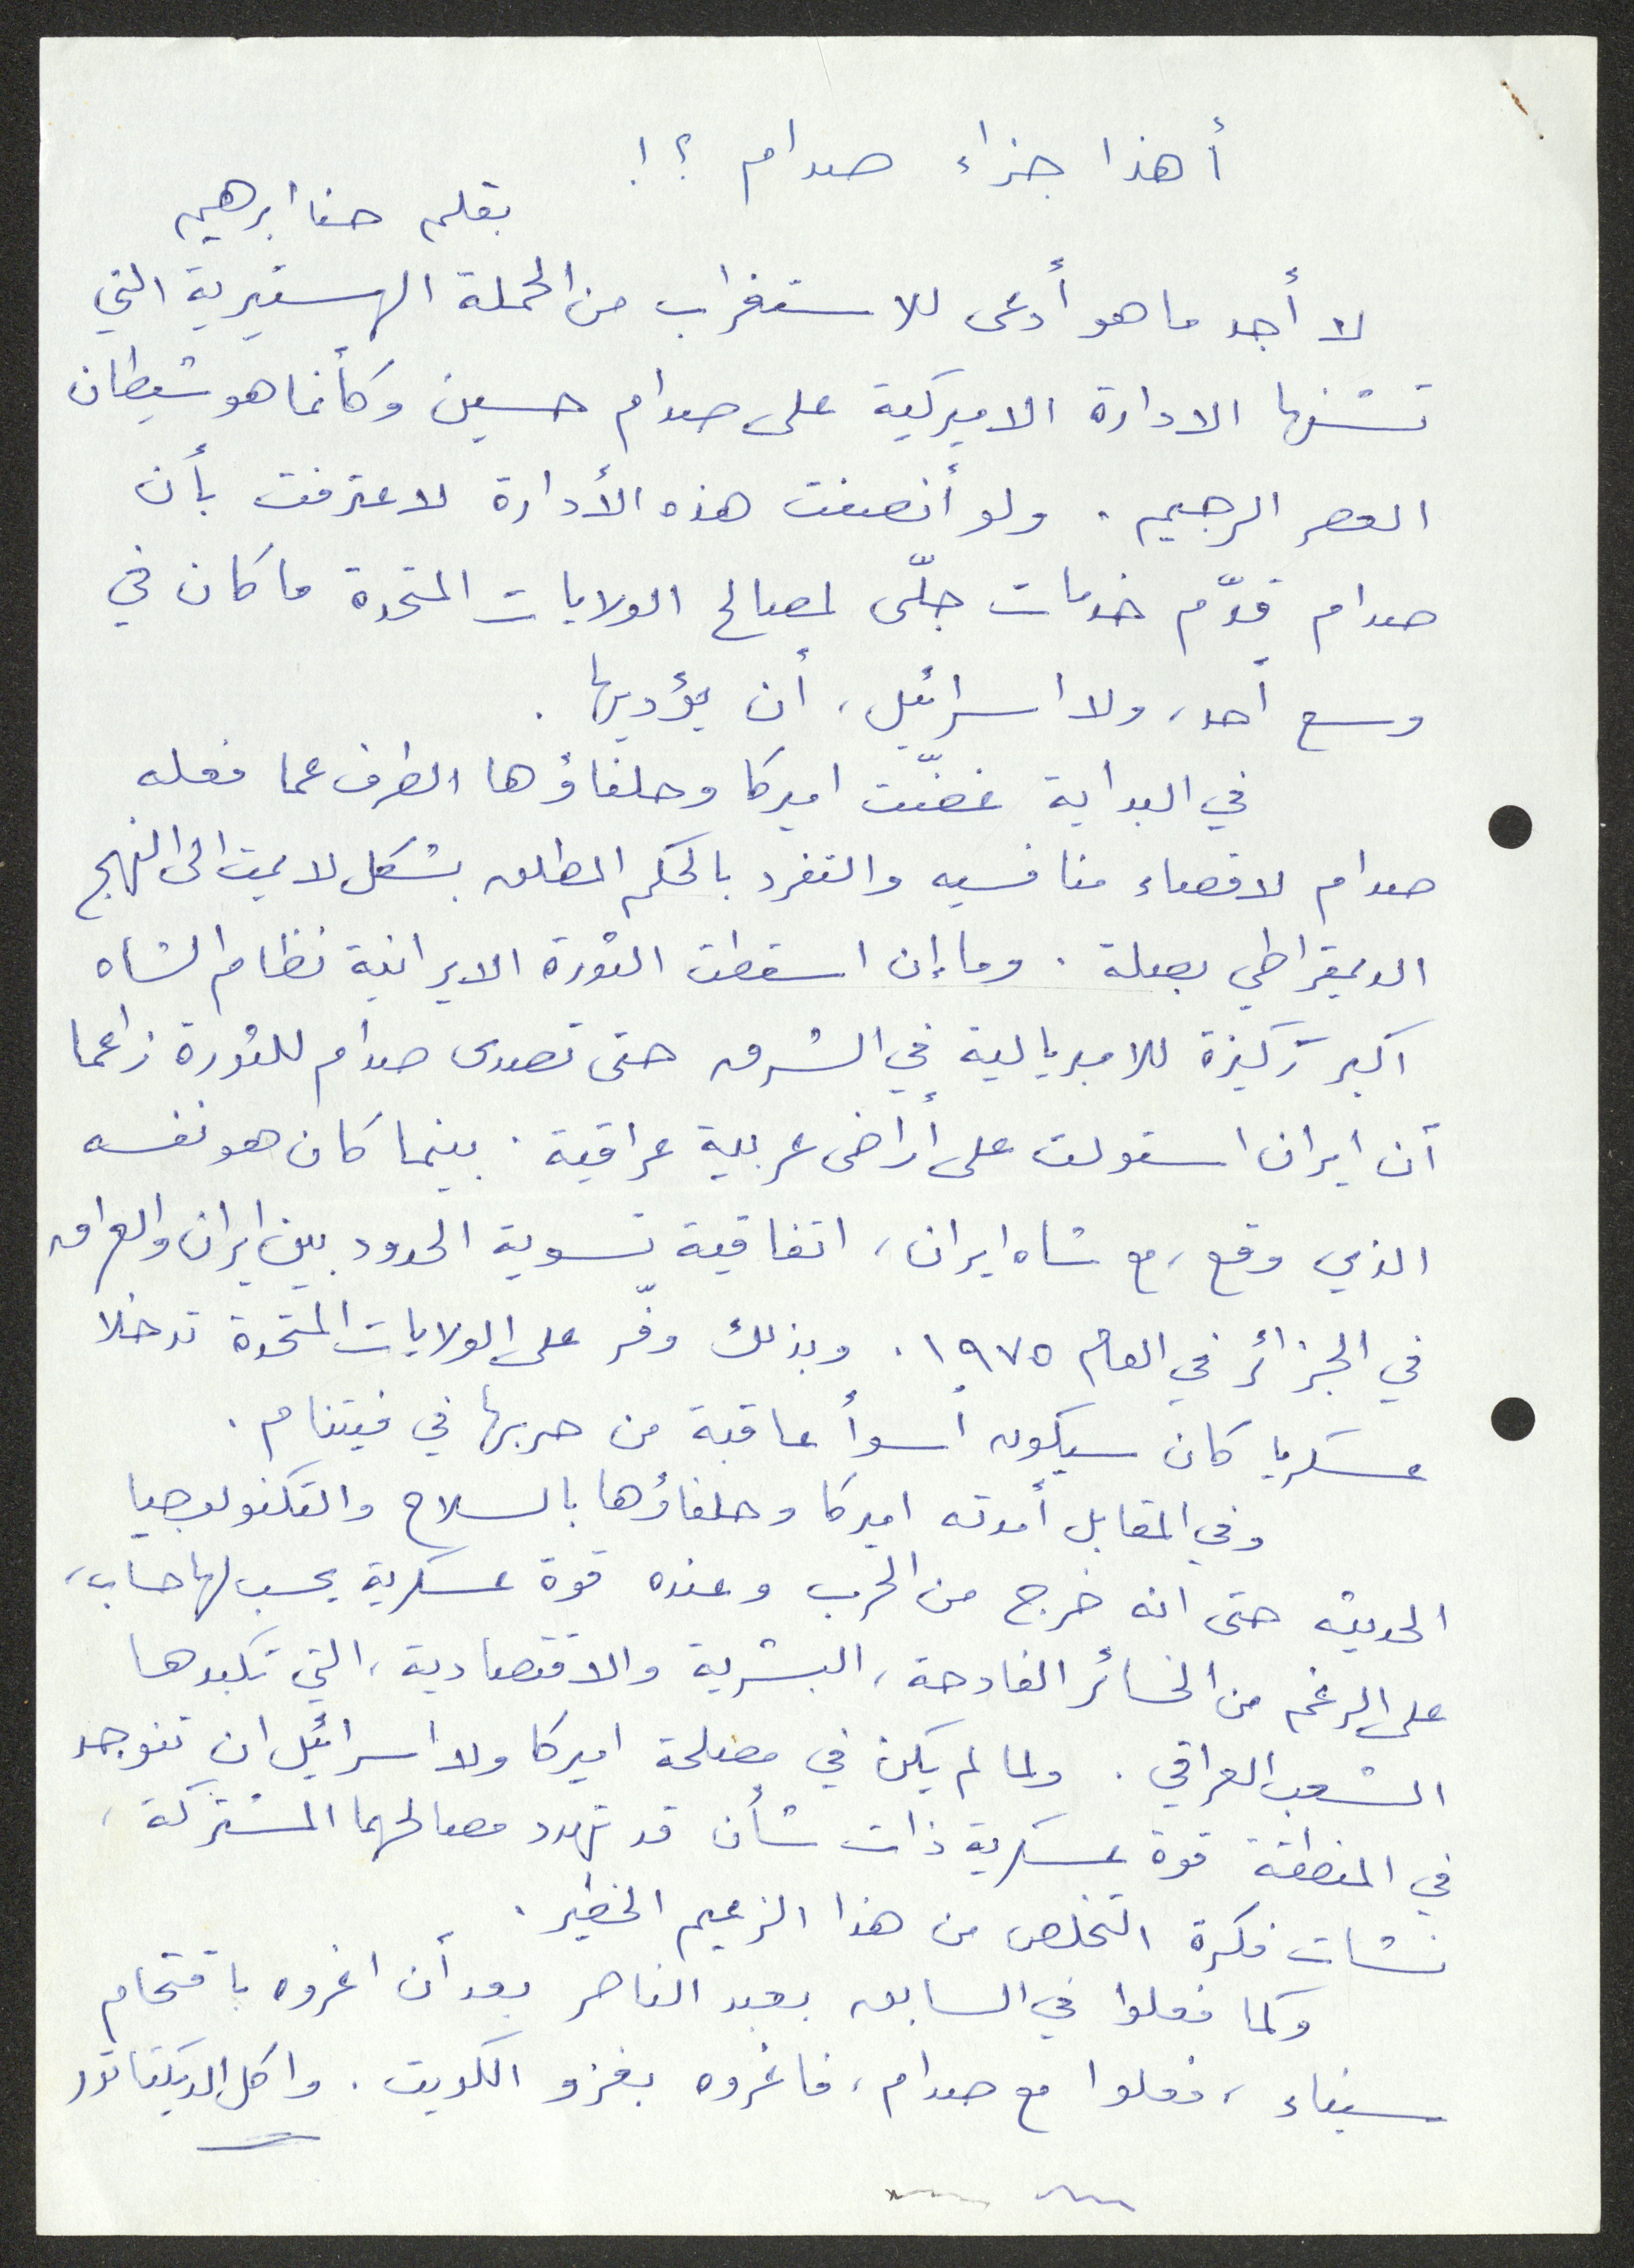 أهذا جزاء صدام ؟!
بقلم حنا ابرهيم
لا أجد ما هو أدعى للاستغراب من الحملة الهستيرية التي
تشنها الادارة الاميركية على صدام حسين وكأنما هو شيطان
العصر الرجيم . ولو أنصفت هذه الأدارة لاعترفت بأن
صدام قدّم خدمات جلّى لمصالح الولايات المتحدة ما كان في
وسع أحد، ولا اسرائيل، أن يؤديها .
في البداية غضّت اميركا وحلفاؤها الطرف عما فعله
صدام لاقصاء منافسيه والتفرد بالحكم المطلق بشكل لا يمت الى النهج
الديمقراطي بصلة . وما إن اسقطت الثورة الايرانية نظام الشاه
اكبر ركيزة للامبريالية في الشرق حتى تصدى صدام للثورة زاعما
أن ايران استولت على أراضى عربية عراقية . بينما كان هو نفسه
الذي وقع، مع شاه ايران، اتفاقية تسوية الحدود بين ايران والعراق
في الجزائر في العام ١٩٧٥ . وبذلك وفّر على الولايات المتحدة تدخلا
عسكريا كان سيكون أسوأ عاقبة من حربها في فيتنام .
وفي المقابل أمدته اميركا وحلفاؤها بالسلاح والتكنولوجيا
الحديثه حتى انه خرج من الحرب وعنده قوة عسكرية يحسب لها حساب،
على الرغم من الخسائر الفادحة، البشرية والاقتصادية، التي تكبدها
الشعب العراقي . ولما لم يكن في مصلحة اميركا ولا اسرائيل ان تتوجد
في المنطقة قوة عسكرية ذات شأن قد تهدد مصالحهما المشتركة،
نشات فكرة التخلص من هذا الزعيم الخطير .
وكما فعلوا في السابق بعبد الناصر بعد أن اغروه باقتحام
سيناء، فعلوا مع صدام، فاغروه بغزو الكويت . واكل الديكتاتور